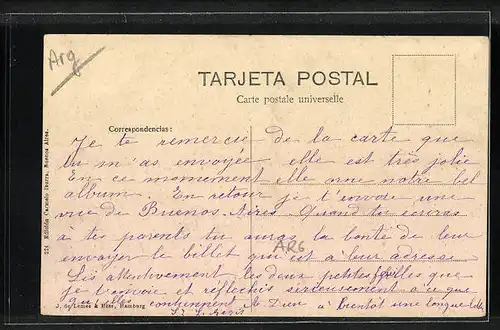 Arg
TARJETA POSTAL
Carte postale universelle
Correspondencias:
Je te remercie de la carte que
tu m'as envoyée elle est très jolie
En ce momement elle orne notre bel
album. En retour je t'envoie une
vue de Buenos-Aires Quand tu écriras
à tes parents tu auras la bonté de leur
ARG
envoyer le billet qui est à leur adresse
Lis attentivement les deux petites feuilles que
je t'envoie et réflechis serieusement à ce que
qu'elles contiennent A Dieu à bientôt une longue lettre
224 Edición Carmelo Ibarra, Buenos Aires.
Hamburg